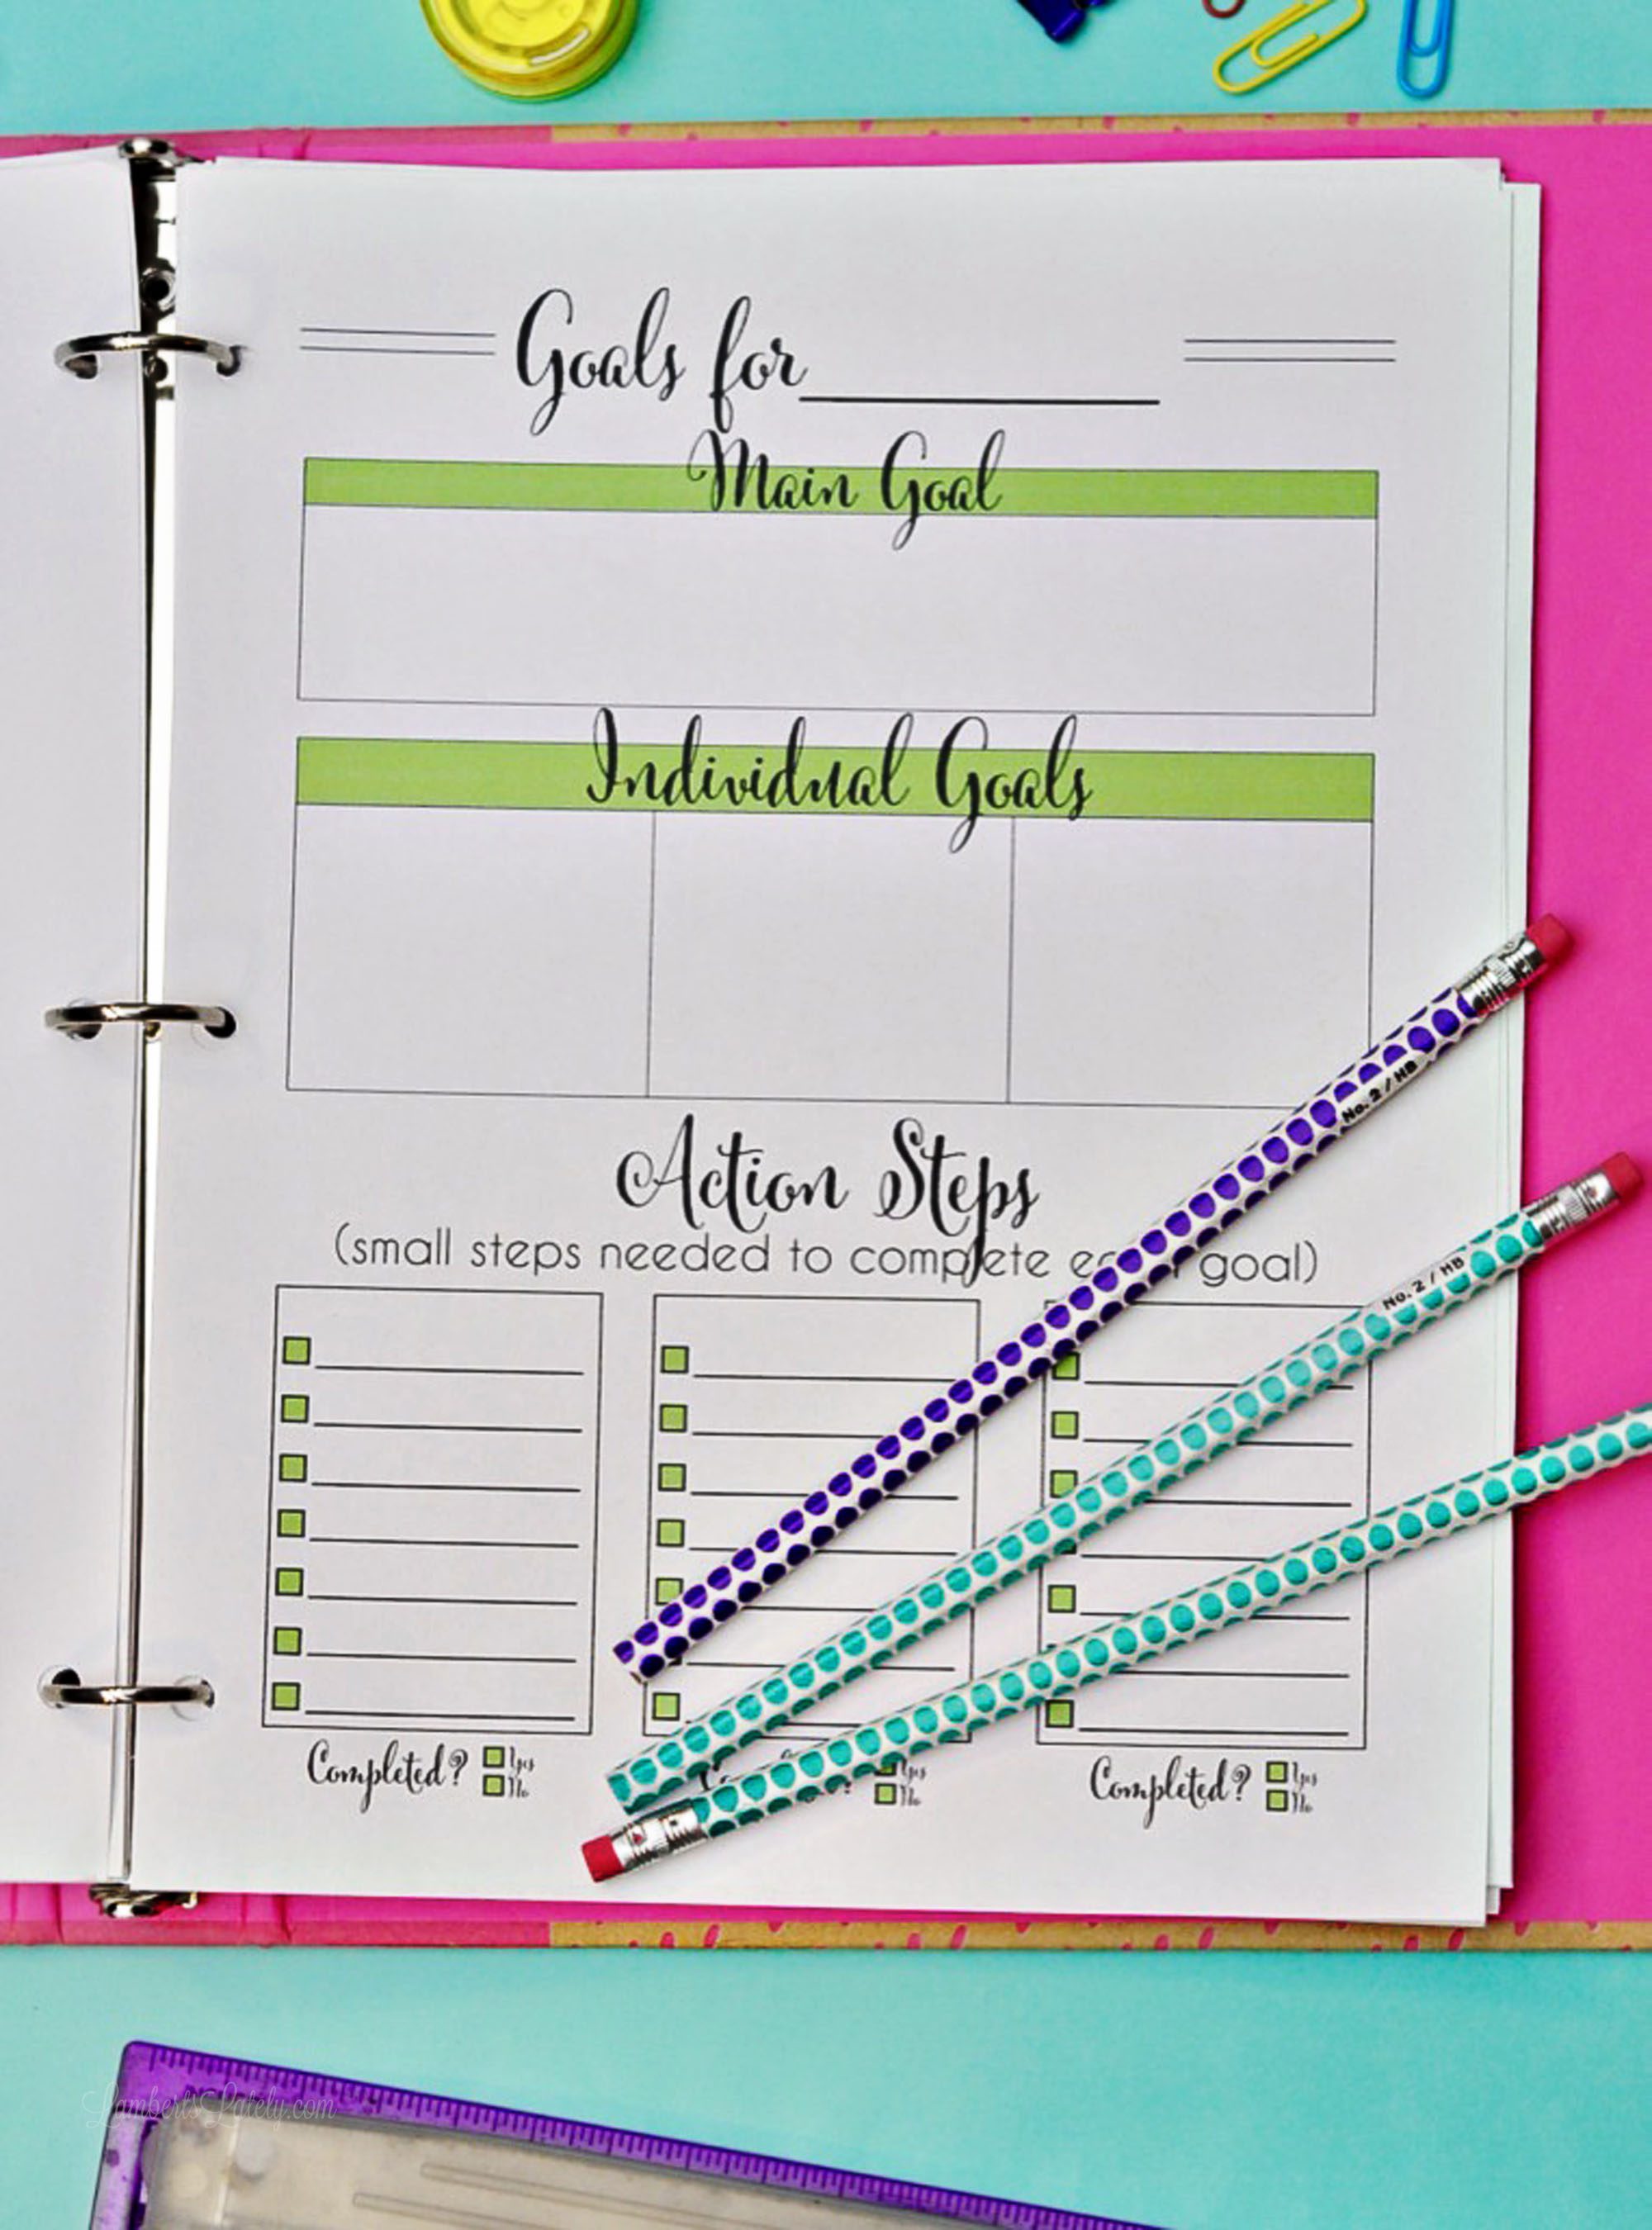 Goals for
Main Goal
Individual Goals
Action Steps
(small steps needed to complete goal)
No. 2 / HB
No. 2 / HB
Completed? Yes
No
Yes
No
Completed? Yes
No
LambertsLately.com